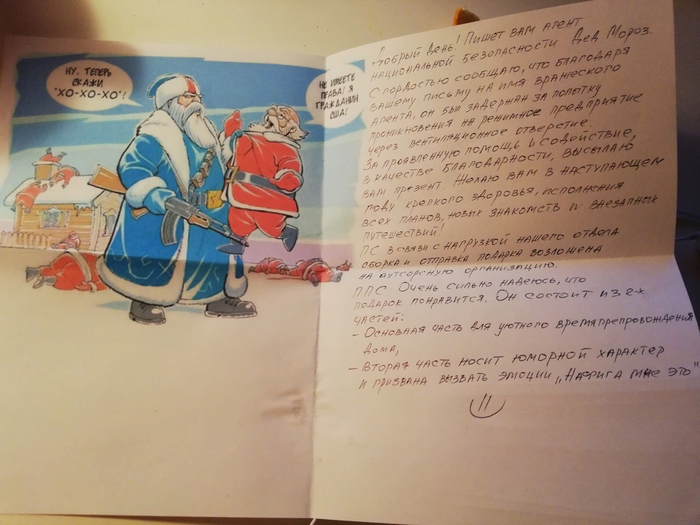 НУ, ТЕПЕРЬ
СКАЖИ
"ХО-ХО-ХО"!
НЕ ИМЕЕТЕ
ПРАВА! Я
ГРАЖДАНИН
США!
Добрый день! Пишет вам агент
национальной безопасности Дед Мороз.
С гордостью сообщаю, что благодаря
вашему письму на имя вражеского
агента, он был задержан за попытку
проникновения на режимное предприятие
через вентиляционное отверстие.
За проявленную помощь и содействие,
в качестве благодарности, высылаю
вам презент. Желаю вам в наступающем
году крепкого здоровья, исполнения
всех планов, новых знакомств и внезапных
путешествий!
ПС в связи с нагрузкой нашего отдела
сборка и отправка подарка возложена
на аутсорсную организацию.
ППС Очень сильно надеюсь, что
подарок понравится. Он состоит из 2-х
частей:
- Основная часть для уютного времяпрепровождения
дома,
- Вторая часть носит юморной характер
и призвана вызвать эмоции „Нафига мне это"